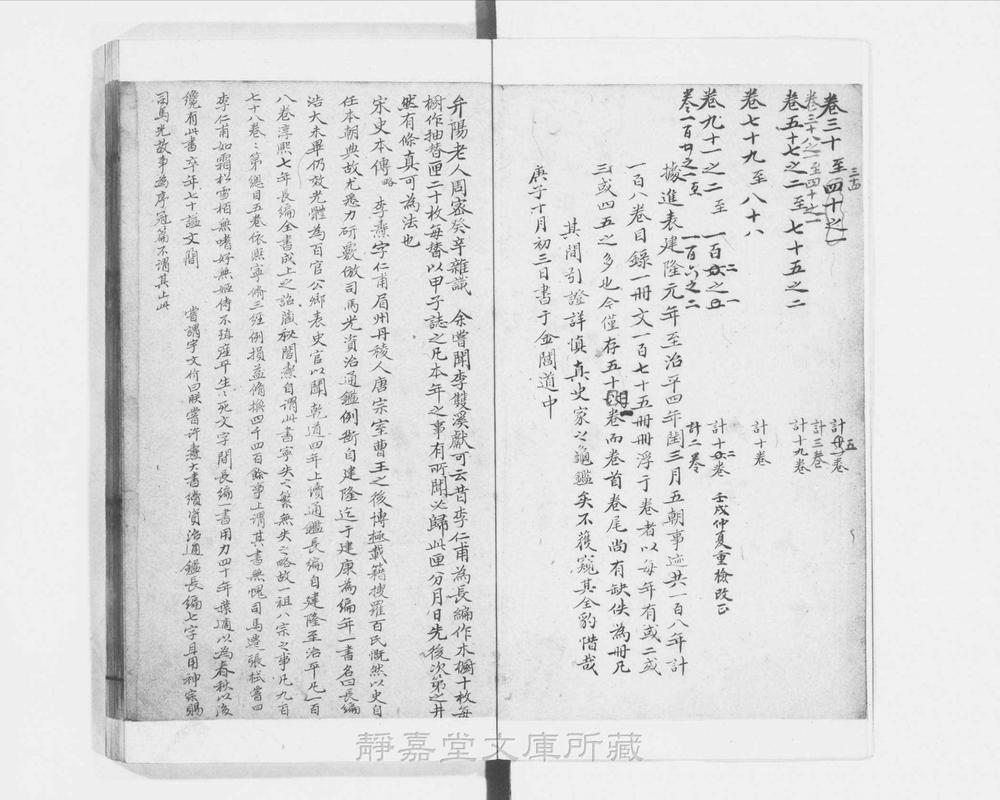 卷三十至四十之一 計五卷
卷三十八之一至四十之一 計三卷
卷五十七之二至七十五之二 計十九卷
卷七十九至八十八 計十卷
卷九十一之二至一百二之一 計十二卷 壬戌仲夏重檢改正
卷一百四之二至一百六之二 計二卷
據進表建隆元年至治平四年閏三月五朝事迹共一百八年計
一百八卷目錄一冊文一百七十五冊冊浮于卷者以每年有或二或
三或四五之多也今僅存五十一卷而卷首卷尾尚有缺佚為冊凡
其間引證詳慎真史家之龜鑑矣不獲窺其全豹惜哉
庚子十月初三日書于金閶道中
弁陽老人周密癸辛雜識 余嘗聞李雙溪獻可云昔李仁甫為長編作木櫥十枚每
櫥作抽替匣二十枚每替以甲子誌之凡本年之事有所聞必歸此匣分月日先後次第之井
然有條真可為法也
宋史本傳略 李燾字仁甫眉州丹稜人唐宗室曹王之後博極載籍搜羅百氏慨然以史自
任本朝典故尤悉力研覈倣司馬光資治通鑑例斷自建隆迄于建康為編年一書名曰長編
浩大未畢仍效光體為百官公卿表史官以聞乾道四年上續通鑑長編自建隆至治平凡一百
八卷淳熙七年長編全書成上之詔藏秘閣燾自謂此書寧失之繁無失之略故一祖八宗之事凡九百
七十八卷卷第總目五卷依熙寧脩三經例損益脩換四千四百餘事上謂其書無愧司馬遷張栻嘗曰
李仁甫如霜松雪栢無嗜好無姬侍不殖產平生生死文字間長編一書用力四十年葉適以為春秋以後
纔有此書卒年七十謚文簡 嘗謂宇文价曰朕嘗許燾大書續資治通鑑長編七字且用神宗賜
司馬光故事為序冠篇不謂其止此
靜嘉堂文庫所藏